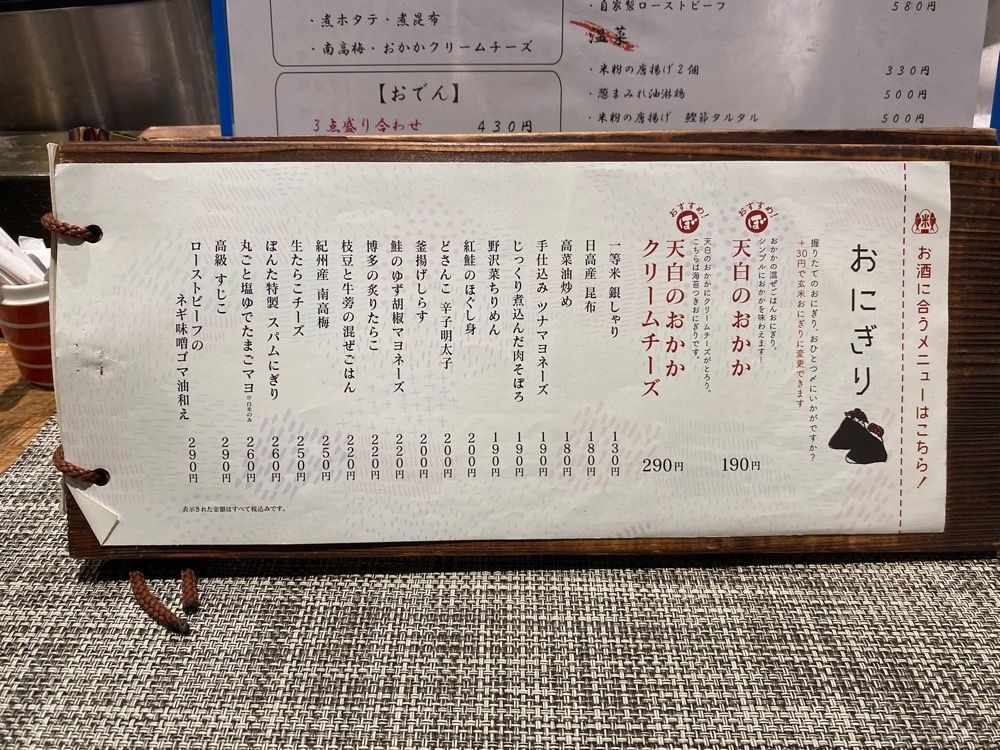 ・煮ホタテ・煮昆布
・南高梅・おかかクリームチーズ
【おでん】
3点盛り合わせ 430円
・自家製ローストビーフ 580円
温菜
・米粉の唐揚げ2個 330円
・葱まみれ油淋鶏 500円
・米粉の唐揚げ 鰹節タルタル 500円
米
お酒に合うメニューはこちら!
おにぎり
握りたてのおにぎり、おひとつ〆にいかがですか?
+30円で玄米おにぎりに変更できます
おすすめ!
ぼ
天白のおかか 190円
おかかの混ぜごはんおにぎり。
シンプルにおかかを味わえます!
おすすめ!
ぼ
天白のおかか
クリームチーズ 290円
天白のおかかにクリームチーズがとろり。
こちらは海苔つきおにぎりです。
一等米 銀しゃり 130円
日高産 昆布 180円
高菜油炒め 180円
手仕込み ツナマヨネーズ 190円
じっくり煮込んだ肉そぼろ 190円
野沢菜ちりめん 190円
紅鮭のほぐし身 200円
どさんこ 辛子明太子 200円
釜揚げしらす 200円
鮭のゆず胡椒マヨネーズ 220円
博多の炙りたらこ 220円
枝豆と牛蒡の混ぜごはん 220円
紀州産 南高梅 250円
生たらこチーズ 250円
ぼんた特製 スパムにぎり 260円
丸ごと塩ゆでたまごマヨ ※白米のみ 260円
高級 すじこ 290円
ローストビーフの
ネギ味噌ゴマ油和え 290円
表示された金額はすべて税込みです。